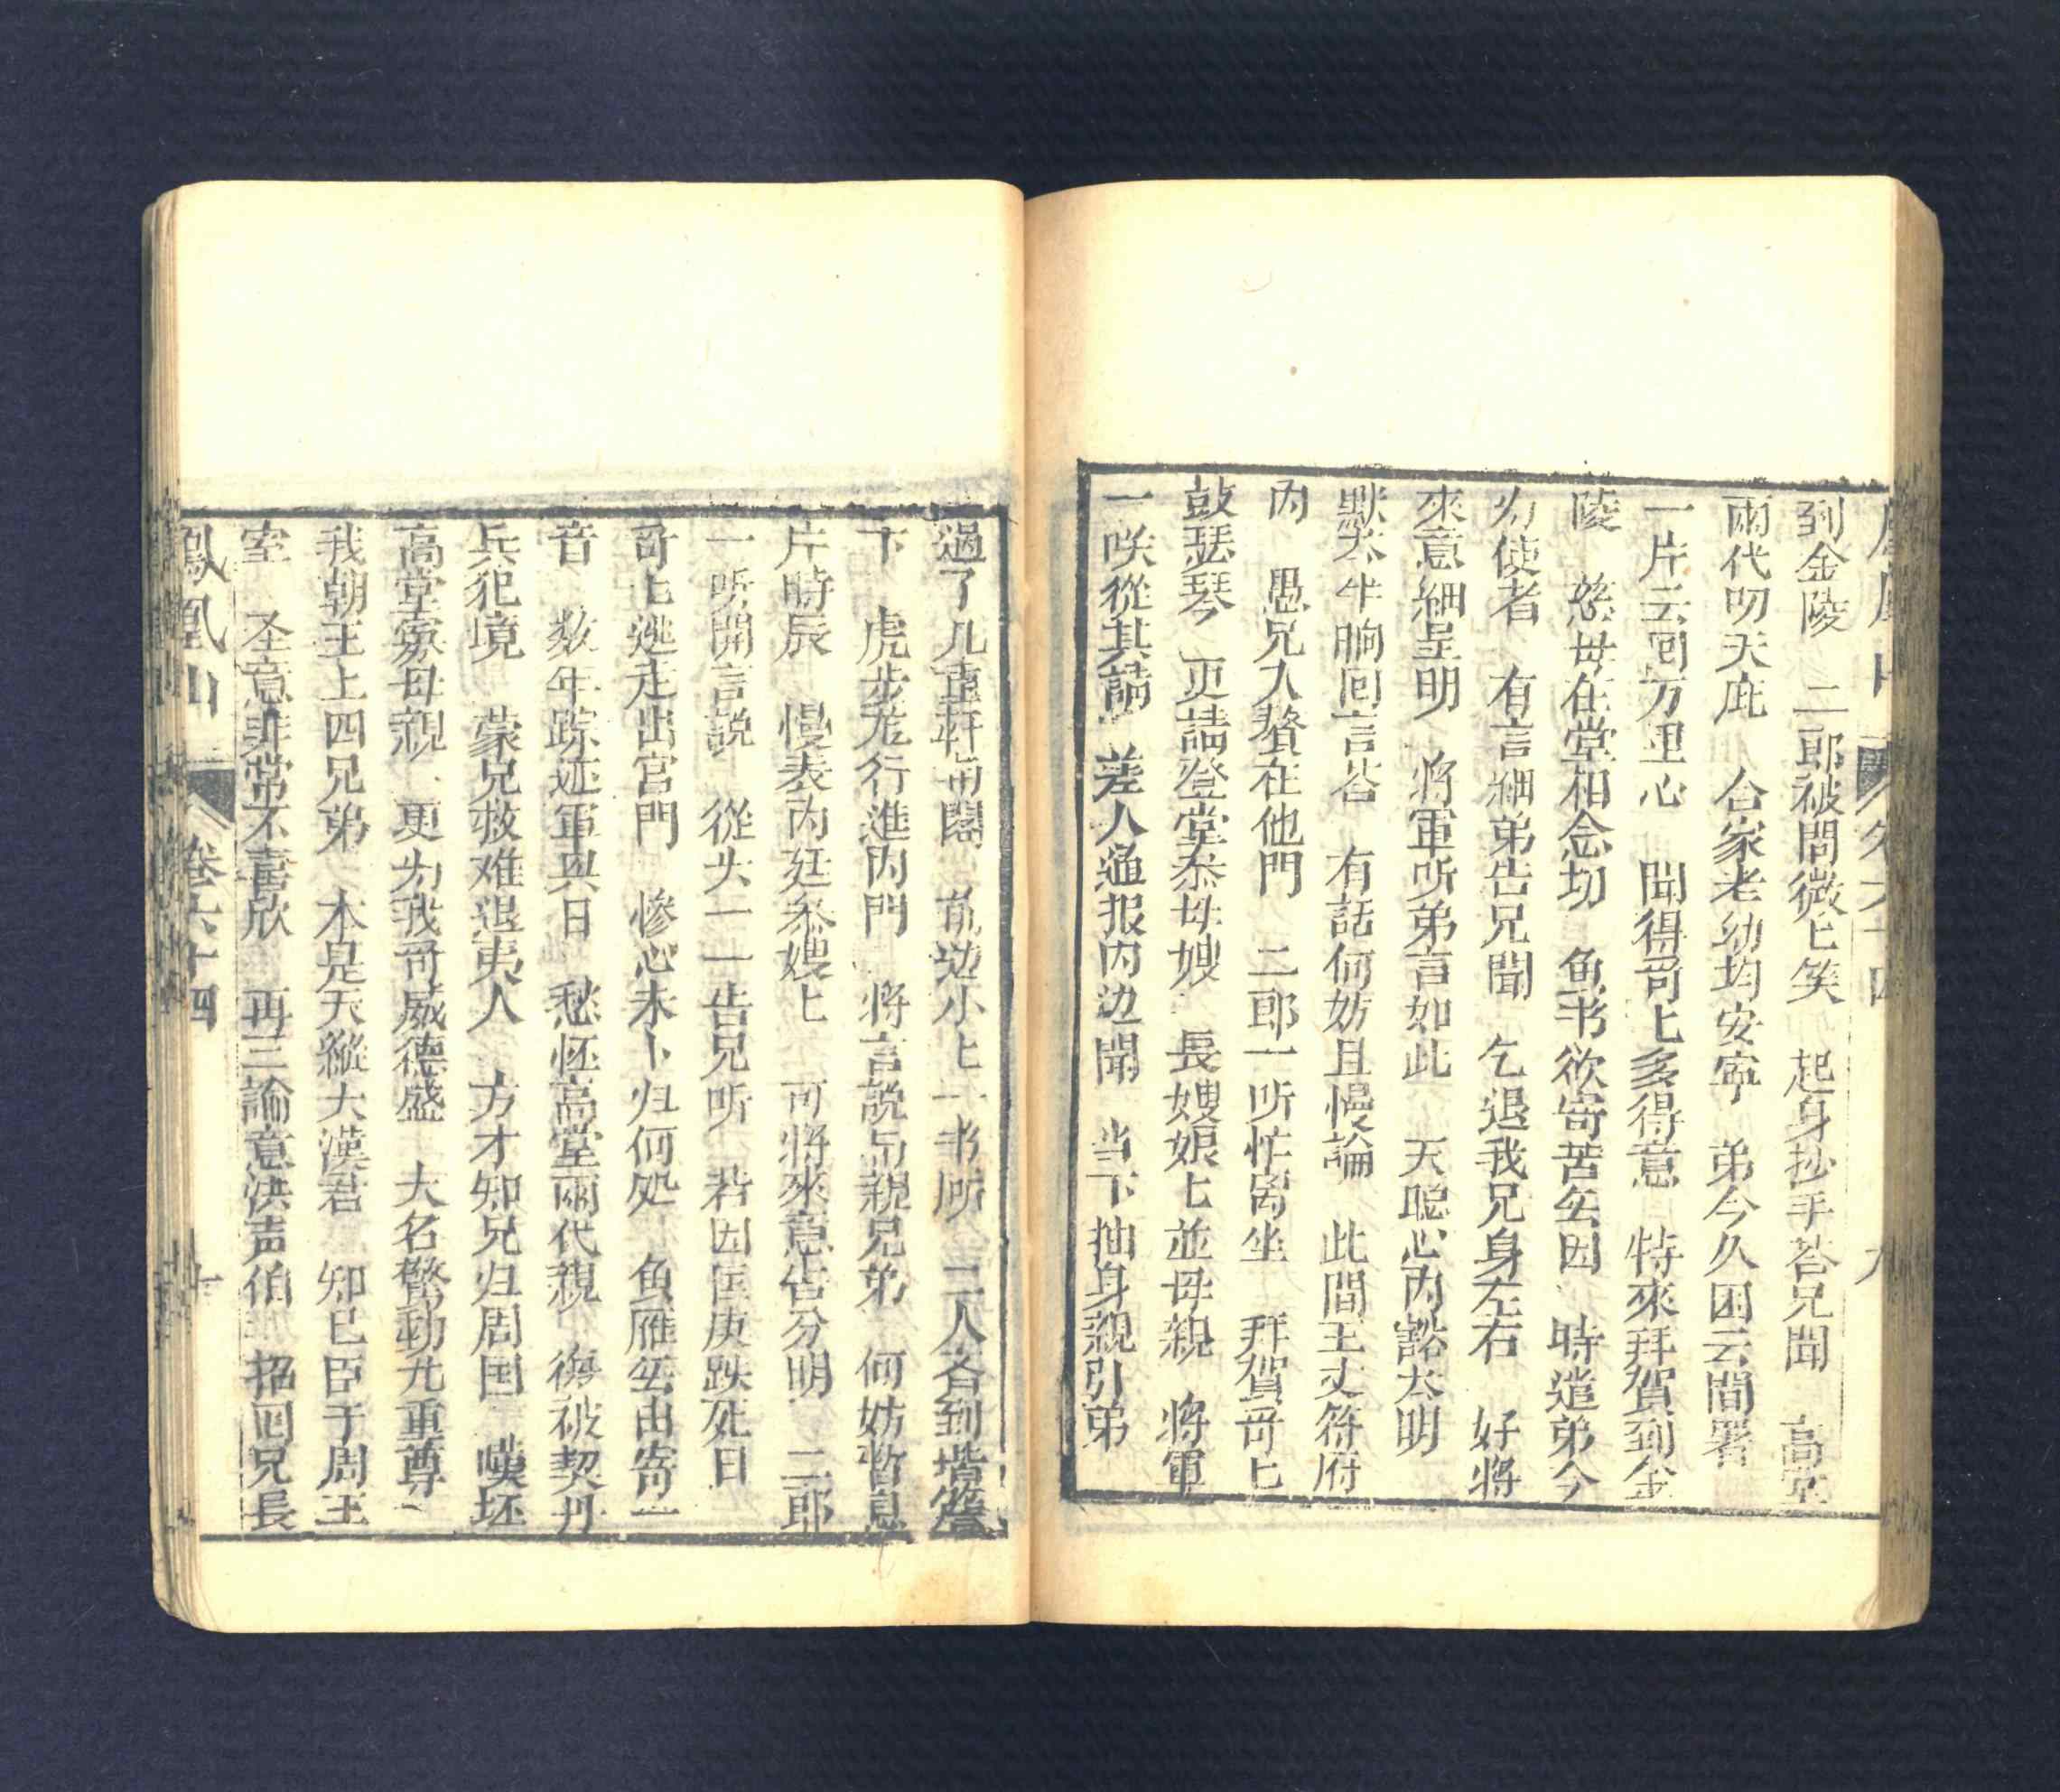 到金陵　二郎被問微匕笑　起身抄手荅兄聞　高堂
兩代叨天庇　合家老幼均安寧　弟今久困云間署
一片云同万里心　聞得哥匕多得意　特來拜賀到金
陵　慈母在堂相念切　魚书欲寄苦無因　時遣弟今
为使者　有言細弟告兄聞　乞退我兄身左右　好將
來意細呈明　將軍听弟言如此　天聪心內豁太明
默然半晌囘言荅　有話何妨且慢論　此間王丈符府
內　愚兄入贅在他門　二郎一听忙离坐　拜賀哥匕
鼓瑟琴　更請登堂叅母嫂　長嫂娘匕並母親　將軍
一咲從其請　差人通报內边聞　当下抽身親引弟
過了几重軒甫閣　前边小匕一书所　二人各到堦簷
下　虎步龙行進內門　將言説与親兄弟　何妨暫息
片時辰　慢表內廷叅嫂匕　可將來意告分明　二郎
一听開言説　從头一一告兄听　若因匡庚跌死日
哥匕逃走出宫門　惨心未卜归何処　魚雁無由寄一
音　数年踪迹軍與日　愁怀高堂兩代親　復被契丹
兵犯境　蒙兄救难退夷人　方才知兄归周国　嘆坯
高堂寡母親　更为我哥威德盛　大名驚動九重尊
我朝王上四兄弟　本是天縱大漢君　卸已臣于周王
室　圣意非常不喜欣　再三論意洪声伯　招囘兄長
鳳凰山　卷六十四